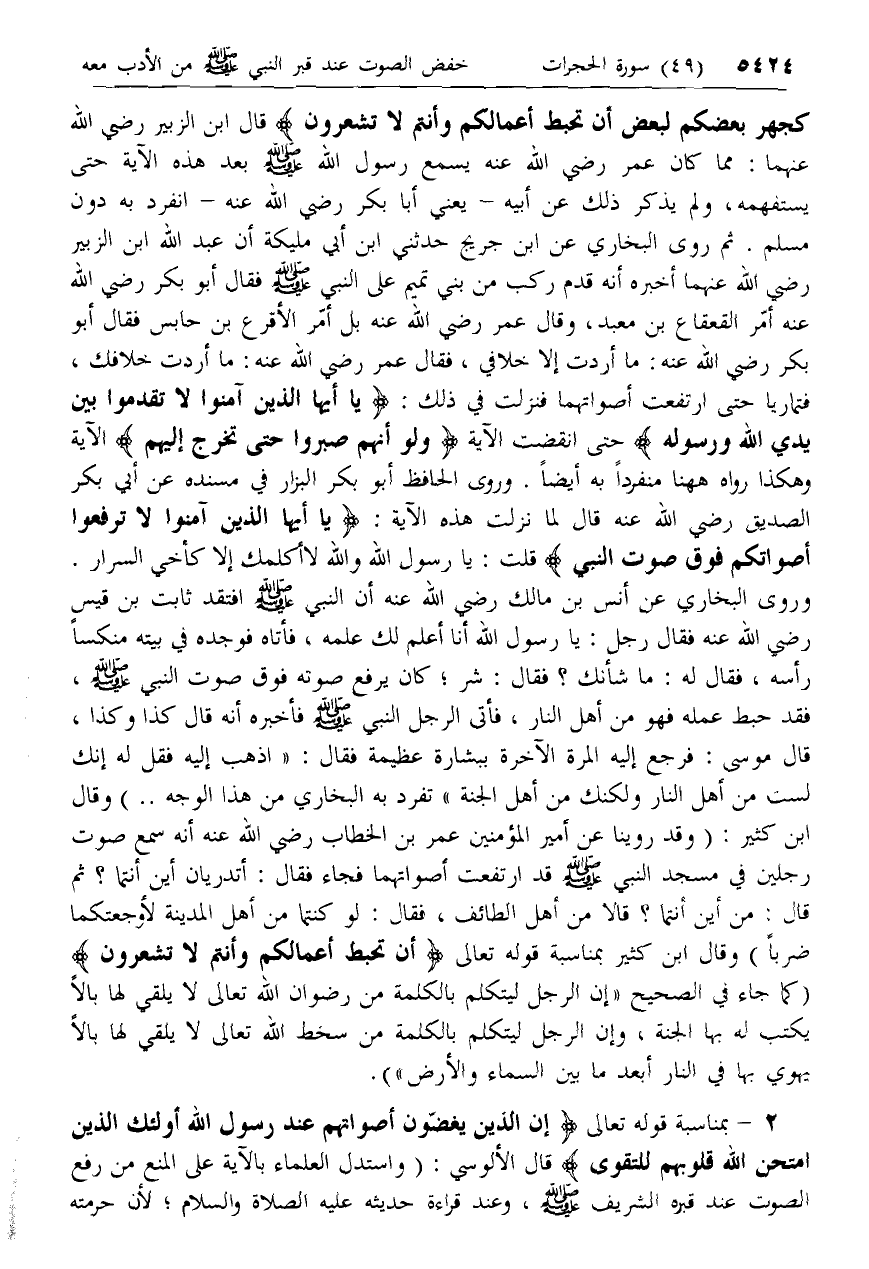 ٥٤٢٤ (٤٩) سورة الحجرات خفض الصوت عند قبر النبي ﷺ من الأدب معه
كجهر بعضكم لبعض أن تحبط أعمالكم وأنتم لا تشعرون ﴾ قال ابن الزبير رضي الله
عنهما : مما كان عمر رضي الله عنه يسمع رسول الله ﷺ بعد هذه الآية حتى
يستفهمه ، ولم يذكر ذلك عن أبيه – يعني أبا بكر رضي الله عنه – انفرد به دون
مسلم . ثم روى البخاري عن ابن جريج حدثني ابن أبي مليكة أن عبد الله ابن الزبير
رضي الله عنهما أخبره أنه قدم ركب من بني تميم على النبي ﷺ فقال أبو بكر رضي الله
عنه أمّر القعقاع بن معبد ، وقال عمر رضي الله عنه بل أمّر الأقرع بن حابس فقال أبو
بكر رضي الله عنه : ما أردت إلا خلافي ، فقال عمر رضي الله عنه : ما أردت خلافك ،
فتماريا حتى ارتفعت أصواتهما فنزلت في ذلك : ﴿ يا أيها الذين آمنوا لا تقدموا بين
يدي الله ورسوله ﴾ حتى انقضت الآية ﴿ ولو أنهم صبروا حتى تخرج إليهم ﴾ الآية
وهكذا رواه ههنا منفرداً به أيضاً . وروى الحافظ أبو بكر البزار في مسنده عن أبي بكر
الصديق رضي الله عنه قال لما نزلت هذه الآية : ﴿ يا أيها الذين آمنوا لا ترفعوا
أصواتكم فوق صوت النبي ﴾ قلت : يا رسول الله والله لاأكلمك إلا كأخي السرار .
وروى البخاري عن أنس بن مالك رضي الله عنه أن النبي ﷺ افتقد ثابت بن قيس
رضي الله عنه فقال رجل : يا رسول الله أنا أعلم لك علمه ، فأتاه فوجده في بيته منكساً
رأسه ، فقال له : ما شأنك ؟ فقال : شر ؛ كان يرفع صوته فوق صوت النبي ﷺ ،
فقد حبط عمله فهو من أهل النار ، فأتى الرجل النبي ﷺ فأخبره أنه قال كذا وكذا ،
قال موسى : فرجع إليه المرة الآخرة ببشارة عظيمة فقال : « اذهب إليه فقل له إنك
لست من أهل النار ولكنك من أهل الجنة » تفرد به البخاري من هذا الوجه .. ) وقال
ابن كثير : ( وقد روينا عن أمير المؤمنين عمر بن الخطاب رضي الله عنه أنه سمع صوت
رجلين في مسجد النبي ﷺ قد ارتفعت أصواتهما فجاء فقال : أتدريان أين أنتما ؟ ثم
قال : من أين أنتما ؟ قالا من أهل الطائف ، فقال : لو كنتما من أهل المدينة لأوجعتكما
ضرباً ) وقال ابن كثير بمناسبة قوله تعالى ﴿ أن تحبط أعمالكم وأنتم لا تشعرون ﴾
( كما جاء في الصحيح «إن الرجل ليتكلم بالكلمة من رضوان الله تعالى لا يلقي لها بالاً
يكتب له بها الجنة ، وإن الرجل ليتكلم بالكلمة من سخط الله تعالى لا يلقي لها بالاً
يهوي بها في النار أبعد ما بين السماء والأرض»).
٢ – بمناسبة قوله تعالى ﴿ إن الذين يغضّون أصواتهم عند رسول الله أولئك الذين
امتحن الله قلوبهم للتقوى ﴾ قال الألوسي : ( واستدل العلماء بالآية على المنع من رفع
الصوت عند قبره الشريف ﷺ ، وعند قراءة حديثه عليه الصلاة والسلام ؛ لأن حرمته